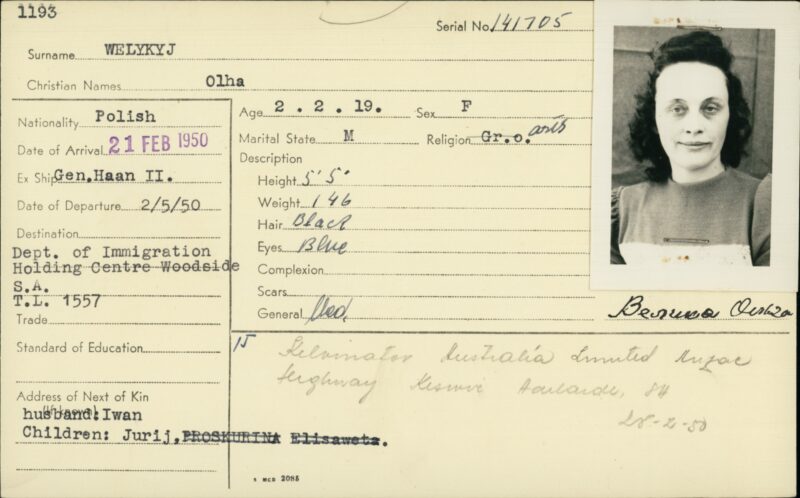 1193
Serial No. 141705
Surname WELYKYJ
Christian Names Olha
Nationality Polish
Date of Arrival 21 FEB 1950
Ex Ship Gen.Haan II.
Date of Departure 2/5/50
Destination
Dept. of Immigration
Holding Centre Woodside
S.A.
T.L. 1557
Trade
Standard of Education
Address of Next of Kin
husband: Iwan
Children: Jurij, PROSKURINA Elisaweta.
Age 2.2.19. Sex F
Marital State M Religion Gr.o.
Description
Height 5'5"
Weight 146
Hair Black
Eyes Blue
Complexion
Scars
General Med
15 Kelvinator Australia Limited Anzac
Highway Keswic Adelaide, SA
28-2-50
5 MCD 2085